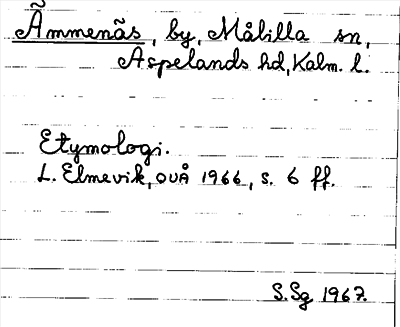 Ãmmenãs, by, Målilla sn,
Aspelands hd, Kalm. l.
Etymologi.
L. Elmevik, OUÅ 1966, s. 6 ff.
S.Sg 1967.